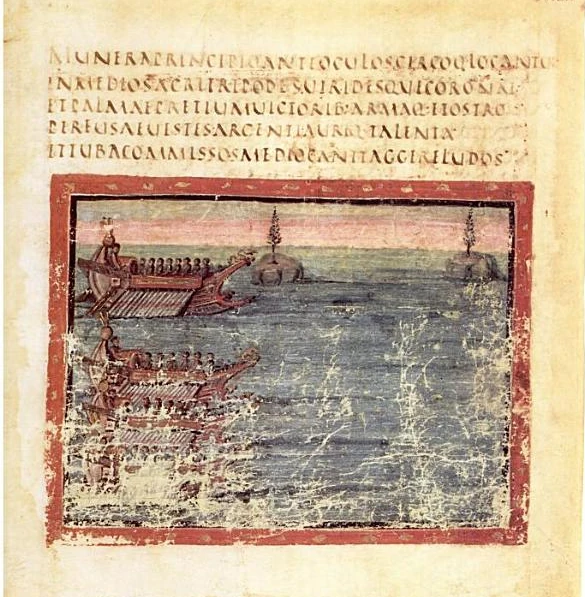 MUNERAPRINCIPIOANTEOCULOSCIRCOQ·LOCANTUR
INMEDIOSACRITRIPODESUIRIDESQUECORONAE
ETPALMAEPRETIUMUICTORIB·ARMAQ·ETOSTRO
PERFUSAEUESTESARGENTIAURIQ·TALENTA
ETTUBACOMMISSOSMEDIOCANITAGGERELUDOS